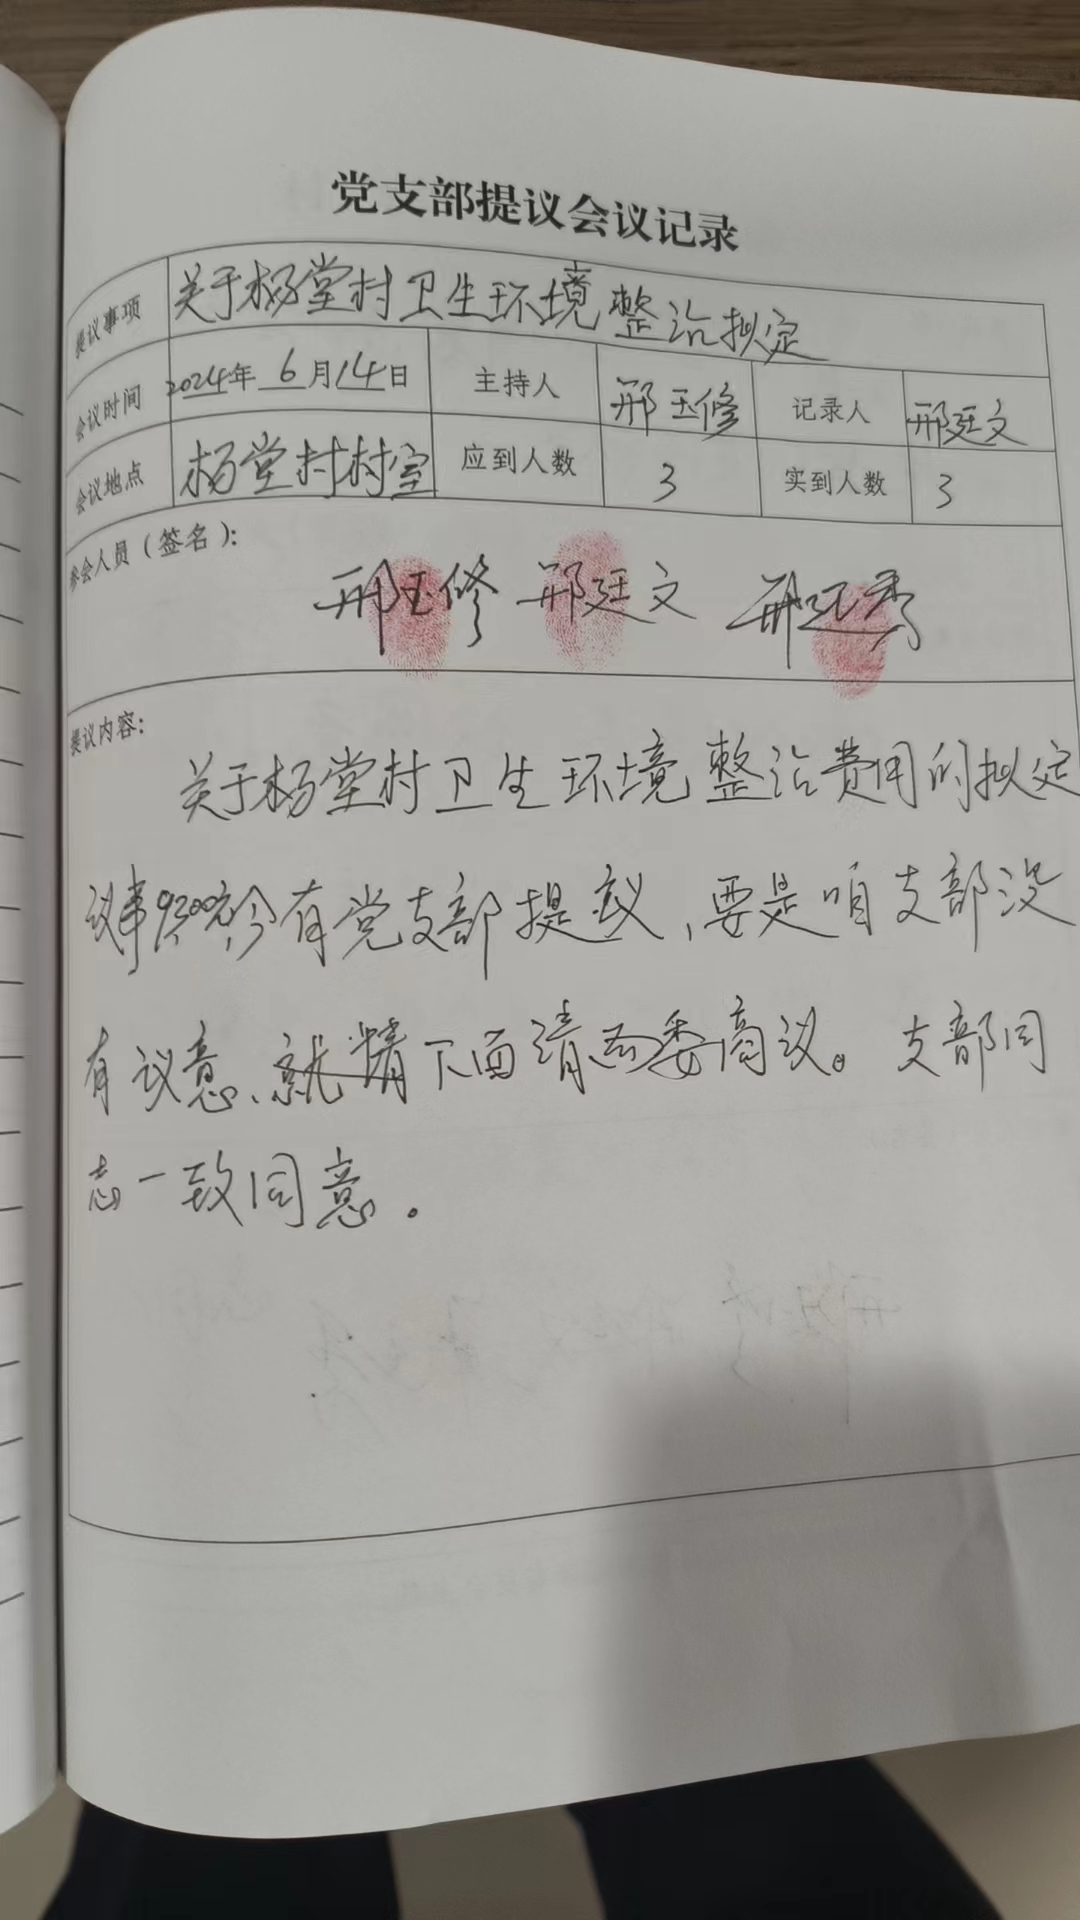 党支部提议会议记录
提议事项 关于杨堂村卫生环境整治拟定
会议时间 2024年 6月14日 主持人 邢玉修 记录人 邢廷文
会议地点 杨堂村村室 应到人数 3 实到人数 3
参会人员(签名):
邢玉修 邢廷文 邢廷秀
提议内容:
关于杨堂村卫生环境整治费用的拟定
议事9300元今有党支部提议,要是咱支部没
有议意、就精下面请两委商议。支部同
志一致同意.